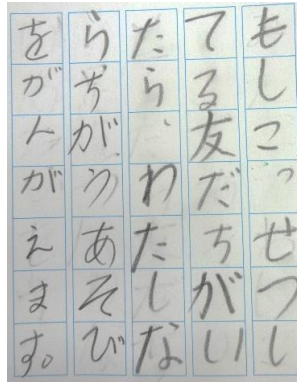 もしこっせつし
てる友だちがい
たら、わたしな
らちがうあそび
をがんがえます。